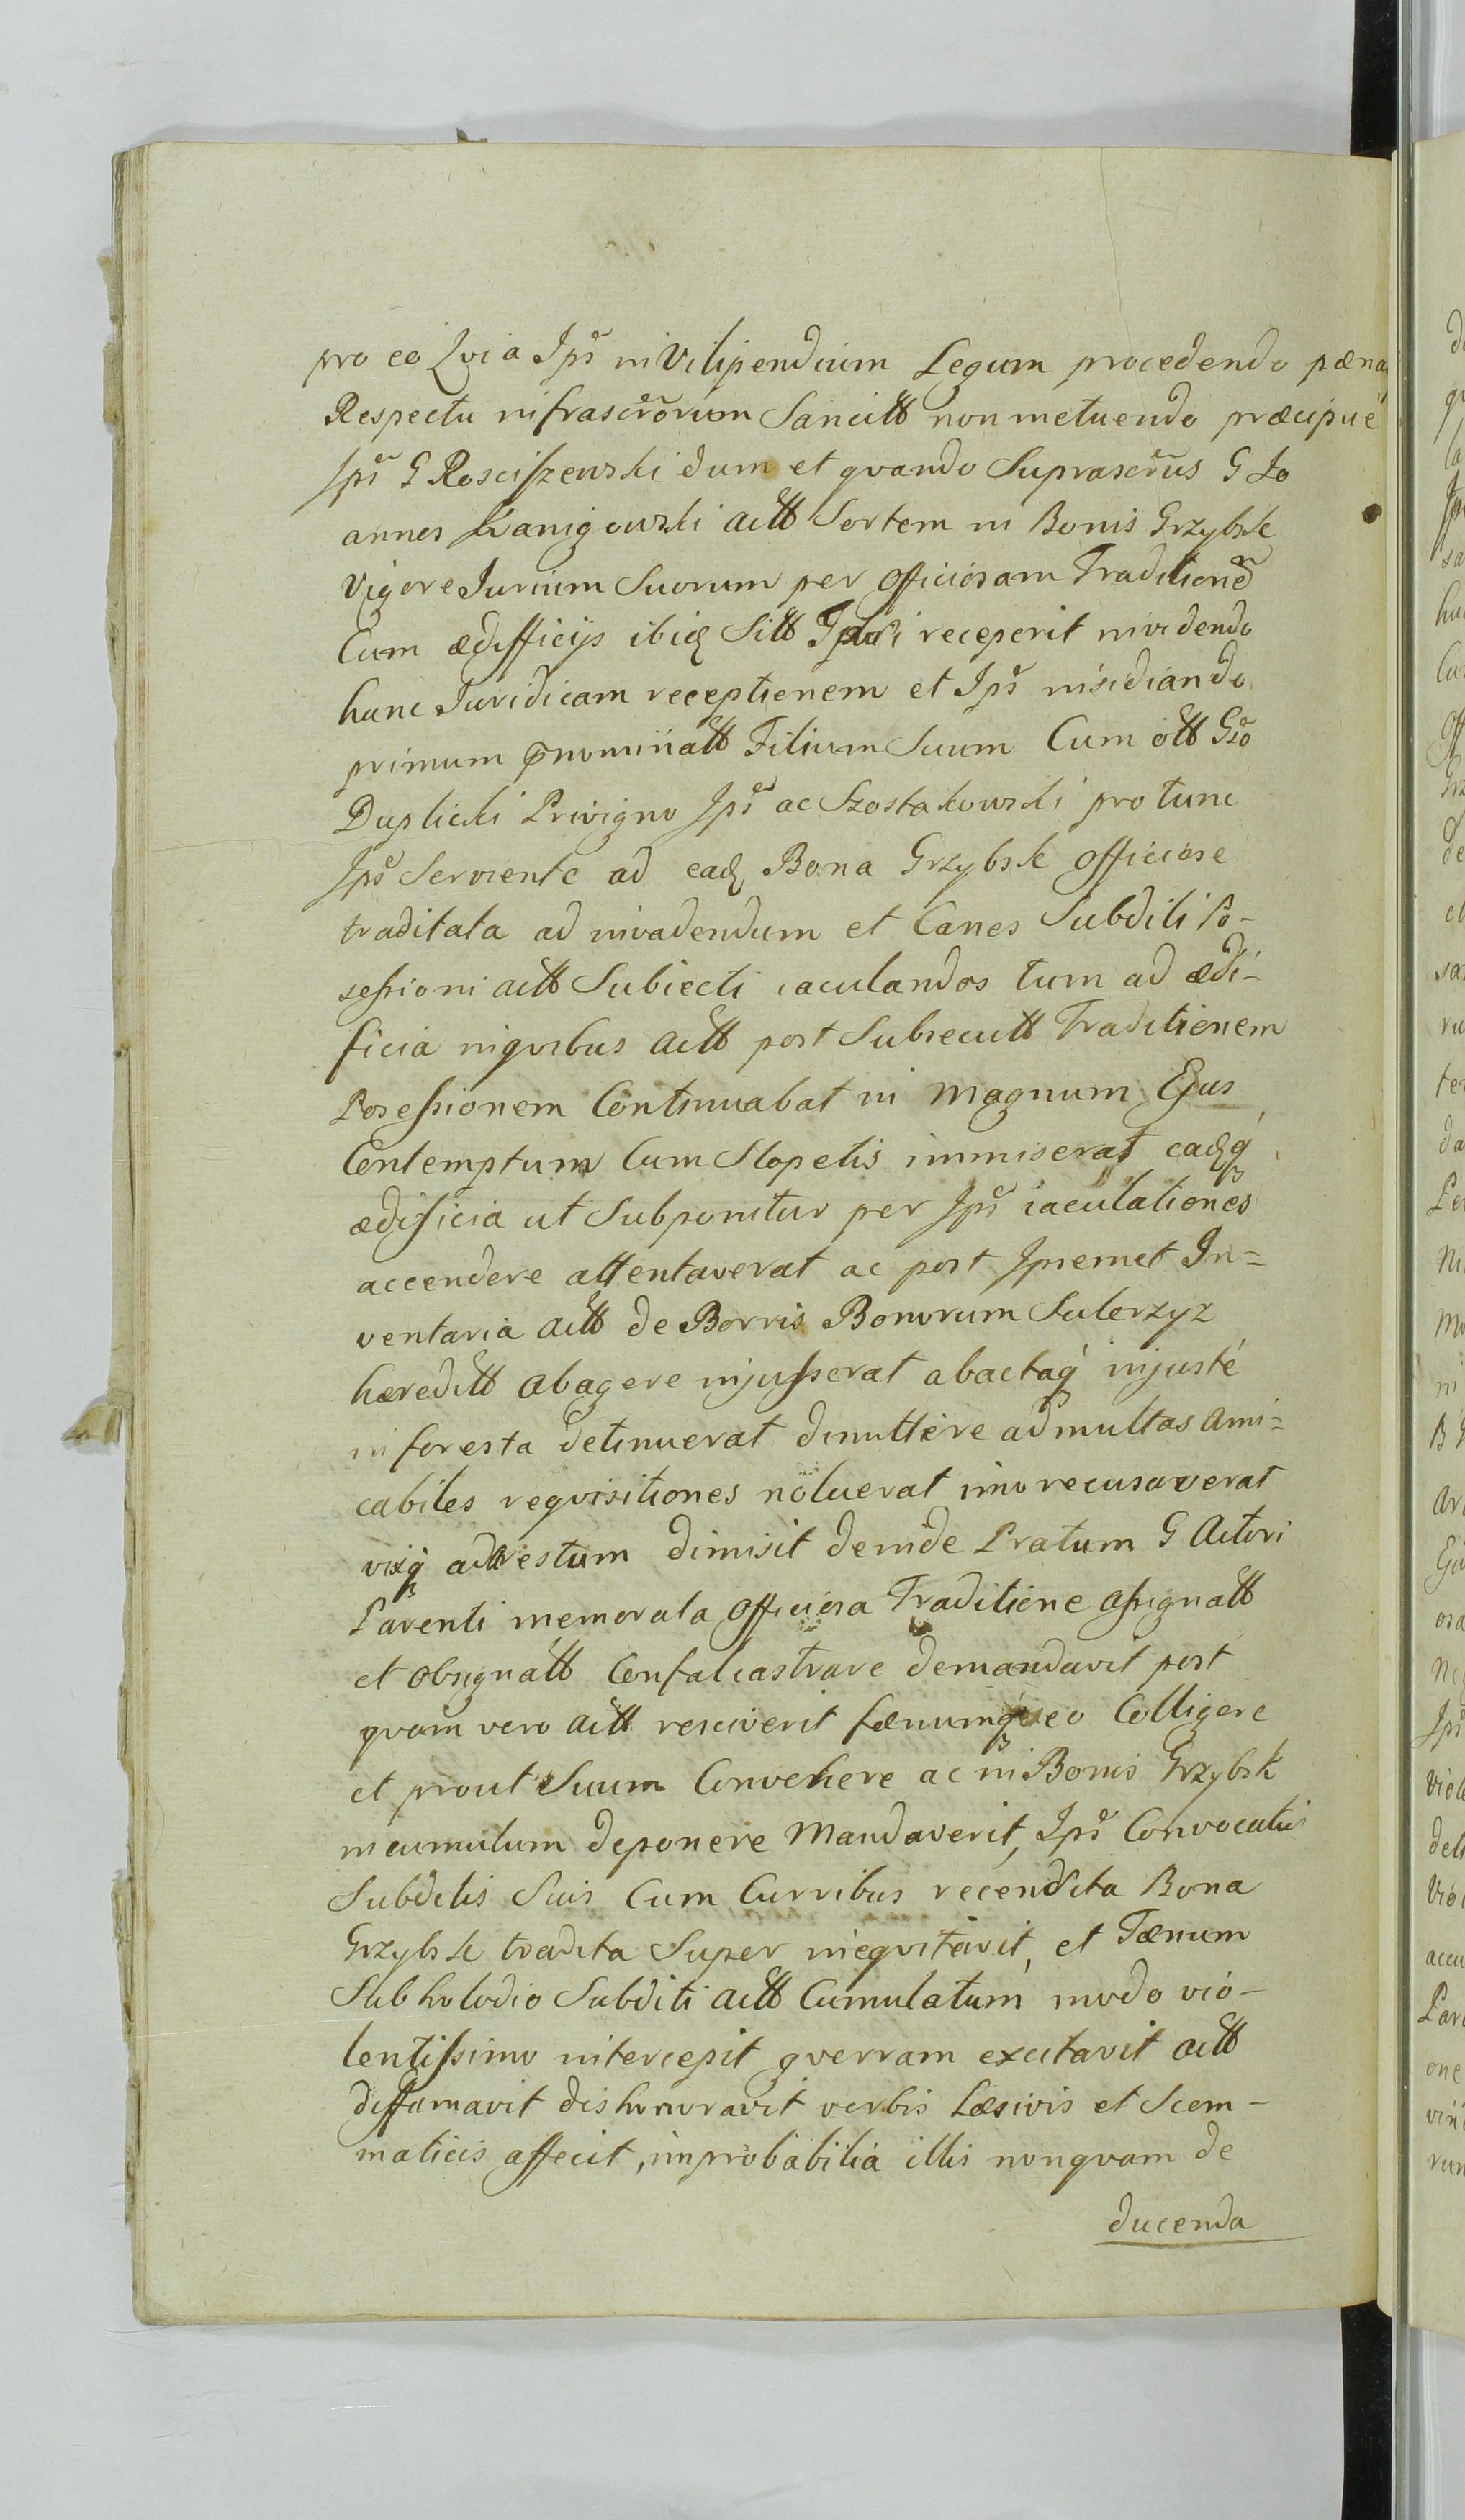 pro eo Qvia Ips̃ in Vilipendium Legum procedendo pæna
Respectu infrascr̃orum Sancitt non metuendo præcipué
Ips̃ G Rosciszewski dum et qvando Suprascr̃us G Jo
annes Kanigowski actt Sortem in Bonis Grzybsk
Vigore Jurium Suorum per officiosam Traditionẽ
Cum ædifficijs ibidq Sitt receperit invidendo
hanc Juridicam receptionem et Ips̃ insidiando
primum pnominatt Filium Suum Cum ott Gso
Duplicki Privigno Ips̃ ac Szostakowski pro tunc
Ips̃ Serviente ad eadq Bona Grzybsk officiose
traditata ad invadendum et Canes Subditi Po-
sessioni actt Subiecti iaculandos tum ad ædi-
ficia inqvibus actt post Subsecutt Traditionem
Posessionem Continuabat in magnum Ejus
Contemptum Cum Slopetis immiserat eadqq
ædificia ut Subponitur per Ips̃ iaculationes
accendere attentaverat ac post Ipsemet In=
ventaria actt de Borris Bonorum Sulerzyz
hæreditt abagere injusserat abactaq injusté
in foresta detinuerat dimittere ad multas ami=
cabiles reqvisitiones noluerat imo recusaverat
vixq ad Arestum dimisit deinde Pratum G Actori
Parenti memorata officiosa Traditione assignatt
et obsignatt Confalcastrare demandavit post
qvam vero actt resciverit fænumq eo Colligere
et prout Suum Convehere ac in Bonis Grzybsk
incumulum deponere Mandaverit, Ips̃ Convocatis
Subditis Suis Cum Curribus recensita Bona
Grzybsk tradita Super ineqvitavit, et Fænum
Sub holodio Subditi actt Cumulatum modo vio-
lentissimo intercepit gverram excitavit actt
diffamavit dishonoravit verbis Læsivis et Scom-
maticis affecit, improbabilia illis nonqvam de
ducenda